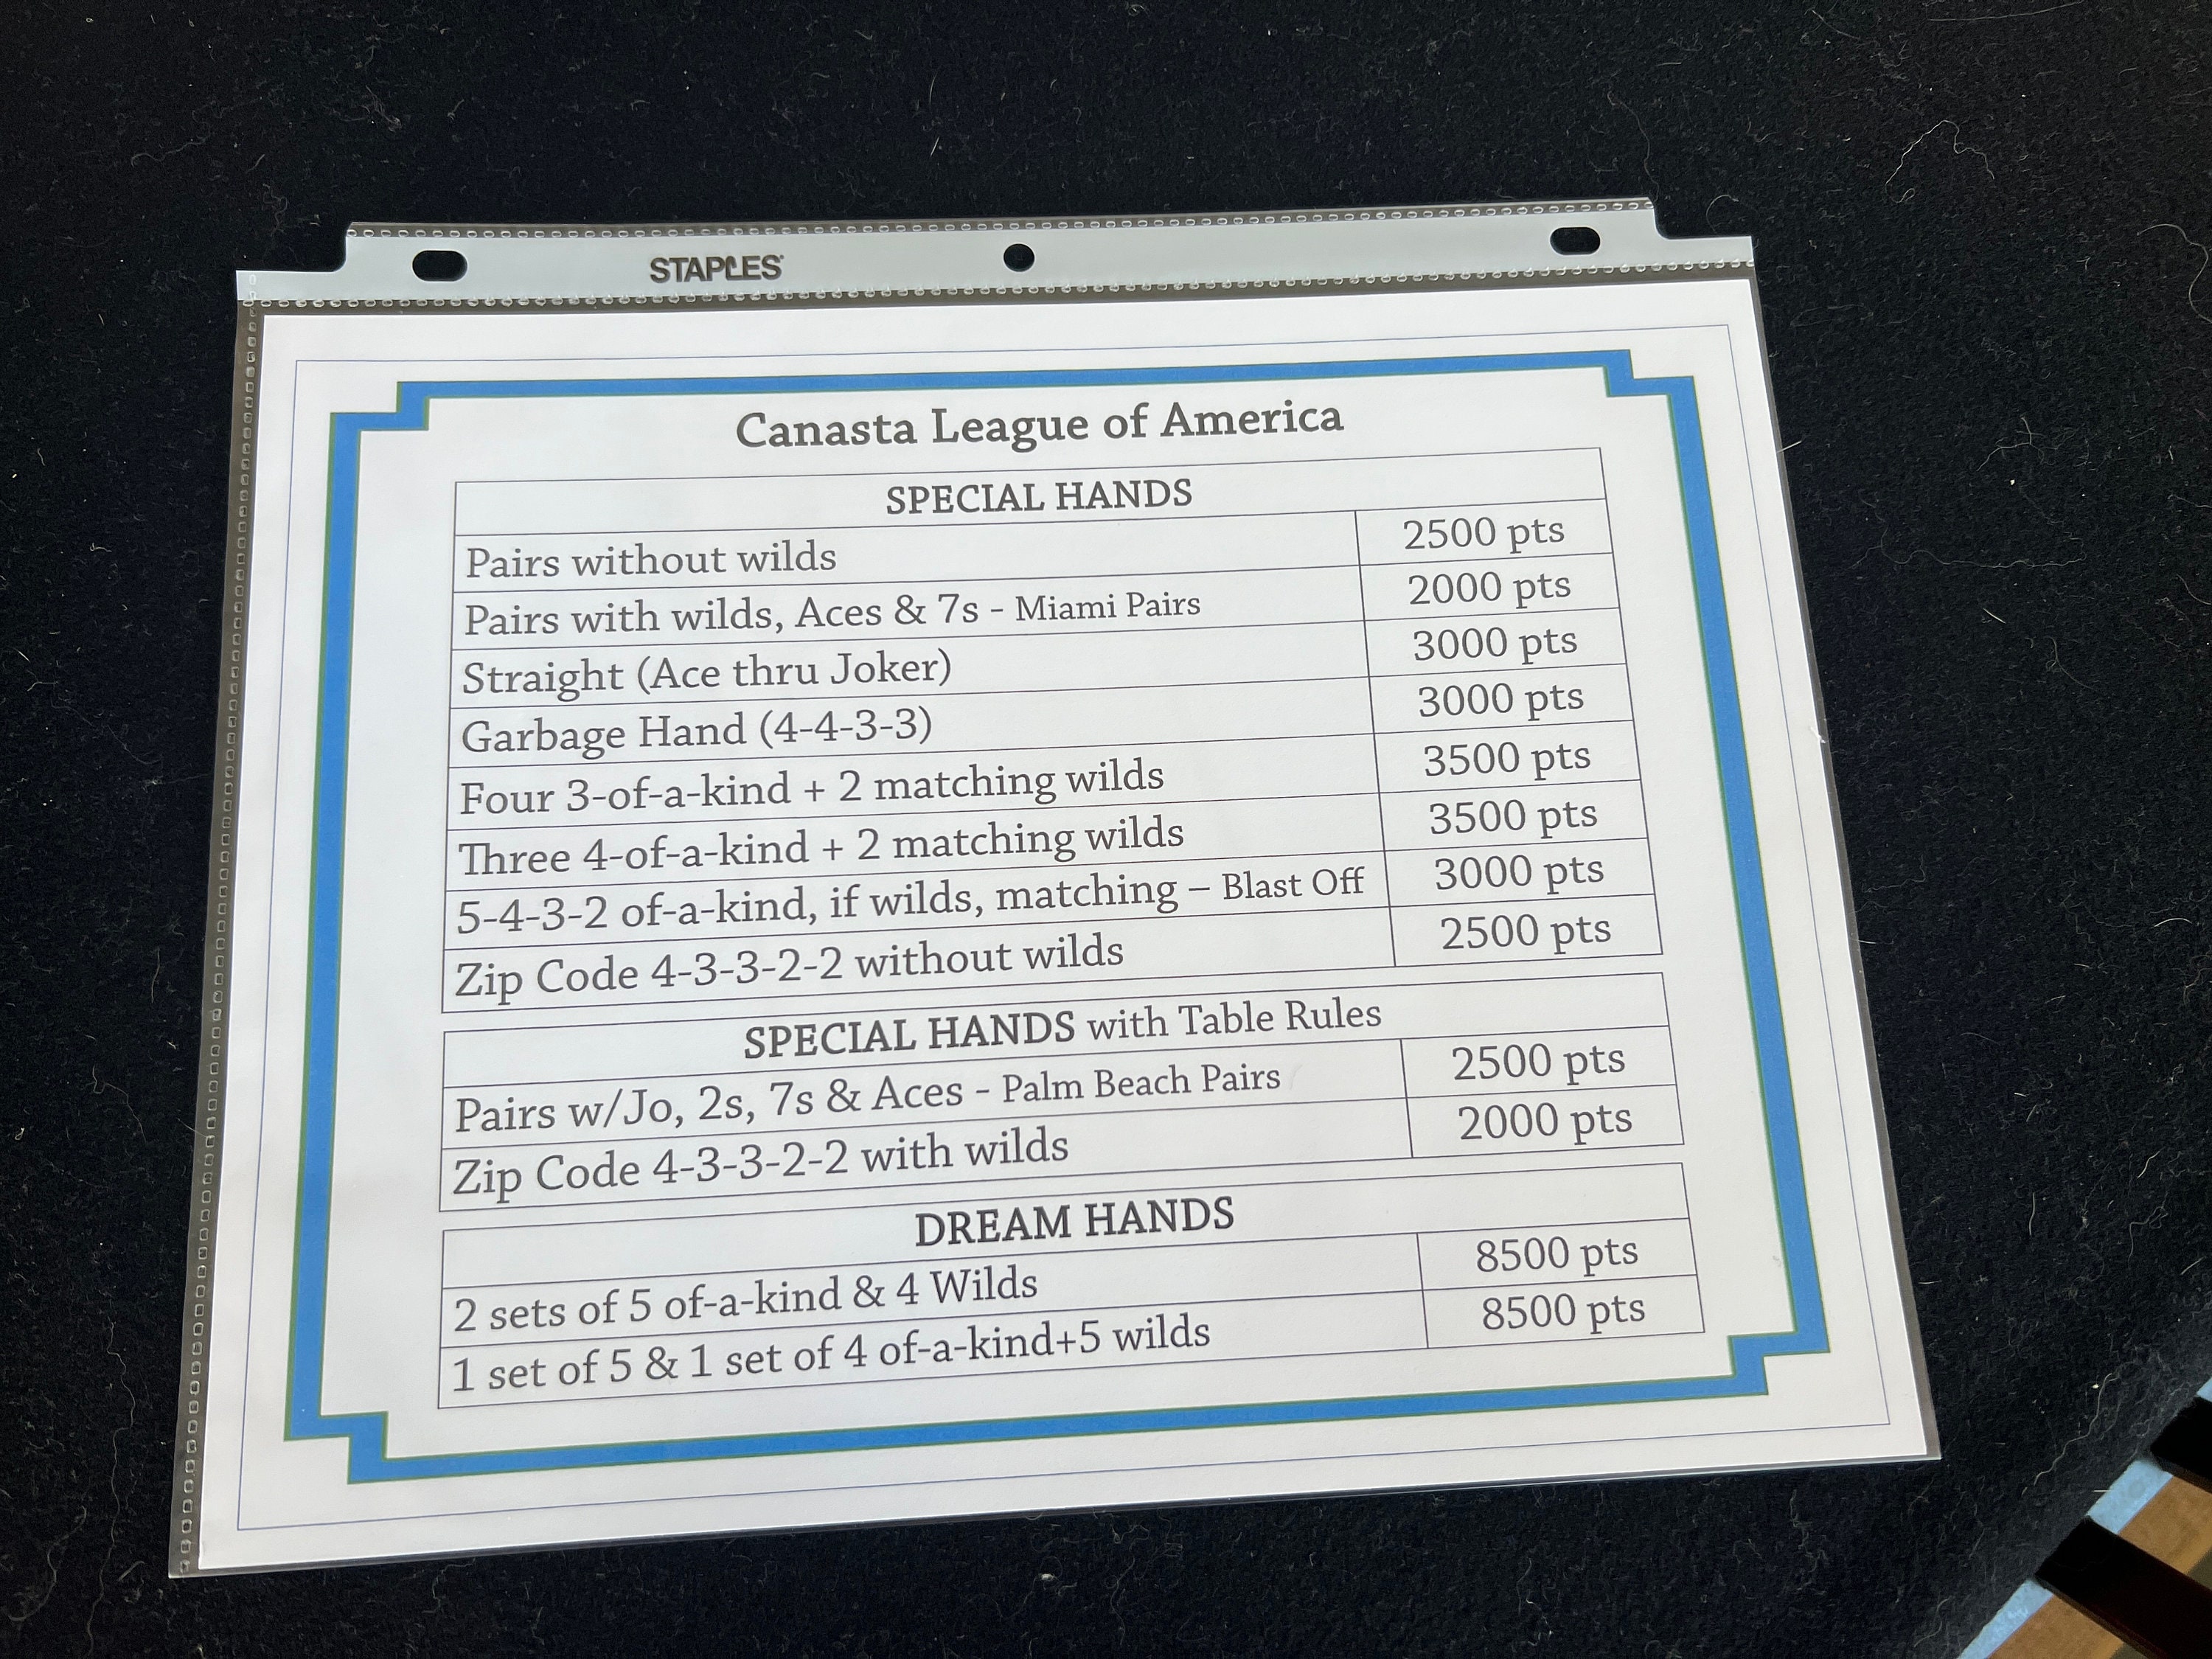 STAPLES
Canasta League of America
SPECIAL HANDS
Pairs without wilds 2500 pts
Pairs with wilds, Aces & 7s - Miami Pairs 2000 pts
Straight (Ace thru Joker) 3000 pts
Garbage Hand (4-4-3-3) 3000 pts
Four 3-of-a-kind + 2 matching wilds 3500 pts
Three 4-of-a-kind + 2 matching wilds 3500 pts
5-4-3-2 of-a-kind, if wilds, matching – Blast Off 3000 pts
Zip Code 4-3-3-2-2 without wilds 2500 pts
SPECIAL HANDS with Table Rules
Pairs w/Jo, 2s, 7s & Aces - Palm Beach Pairs 2500 pts
Zip Code 4-3-3-2-2 with wilds 2000 pts
DREAM HANDS
2 sets of 5 of-a-kind & 4 Wilds 8500 pts
1 set of 5 & 1 set of 4 of-a-kind+5 wilds 8500 pts